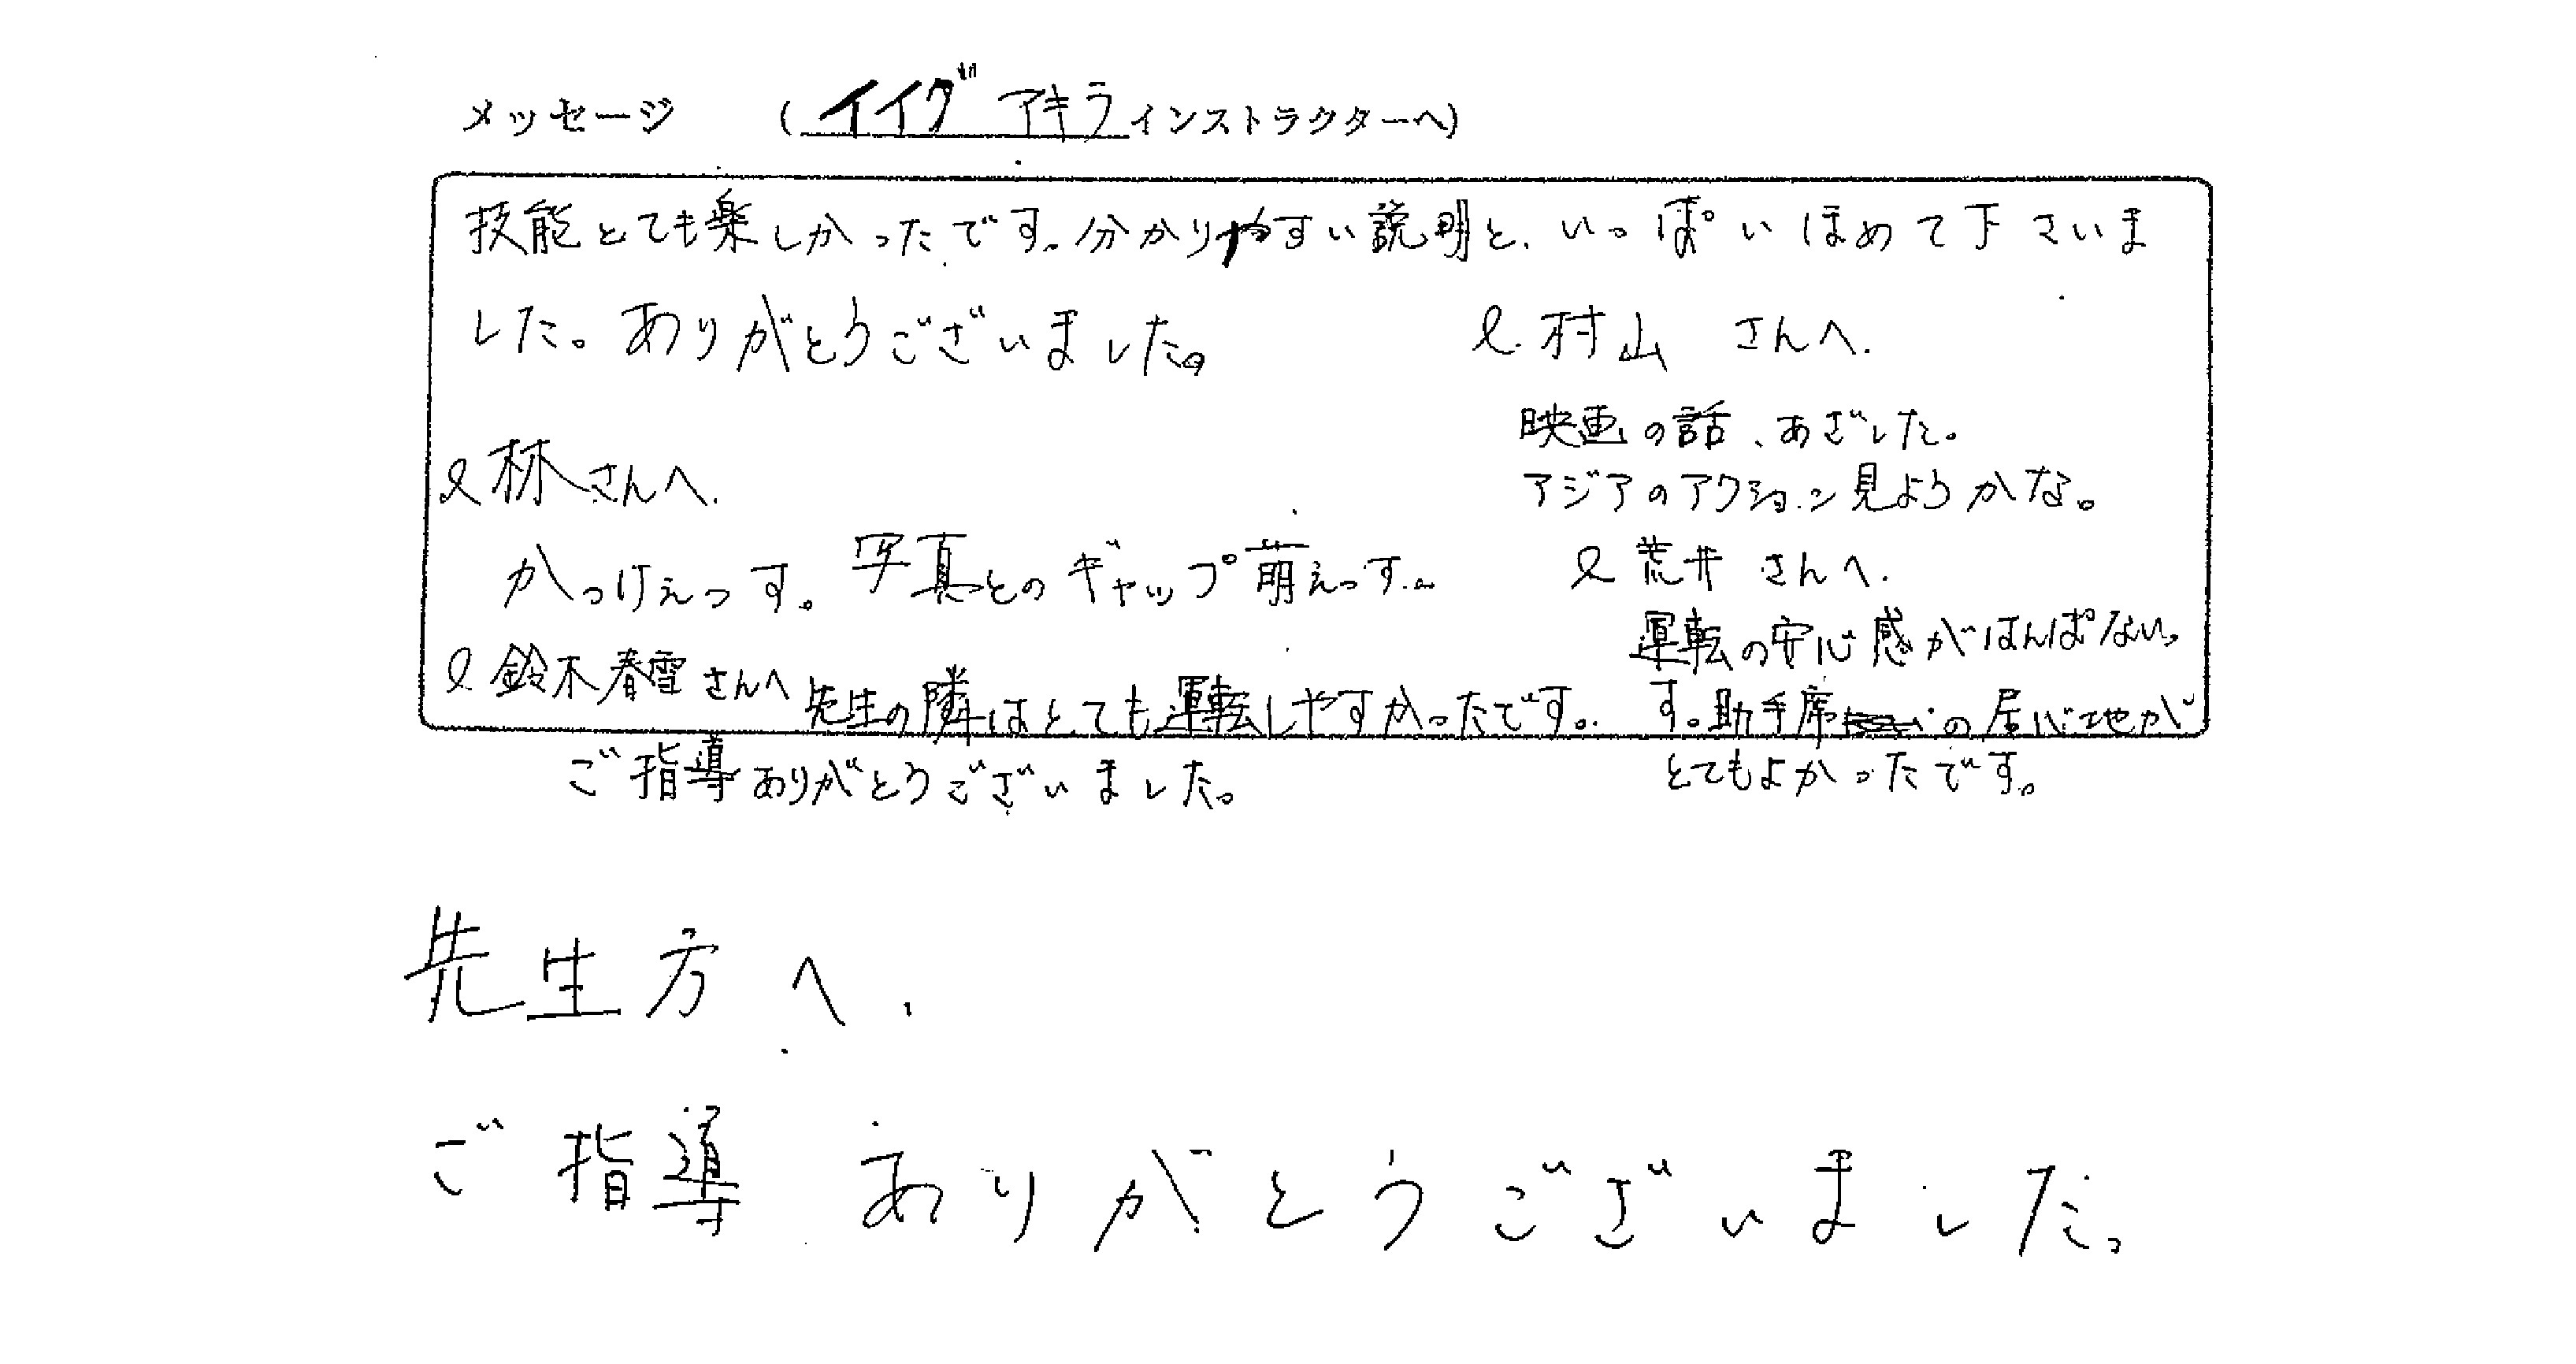 メッセージ （イイダ アキラインストラクターへ）
技能とても楽しかったです。分かりやすい説明と、いっぱいほめて下さいま
した。ありがとうございました。
林さんへ.
かっけぇっす。写真とのギャップ萌えっす。
村山 さんへ.
映画の話、あざした。
アジアのアクション見ようかな。
荒井 さんへ.
運転の安心感がはんぱないっ
す。助手席の居心地が
とてもよかったです。
鈴木春雪さんへ 先生の隣はとても運転しやすかったです。
ご指導ありがとうございました。
先生方へ.
ご指導 ありがとうございました。